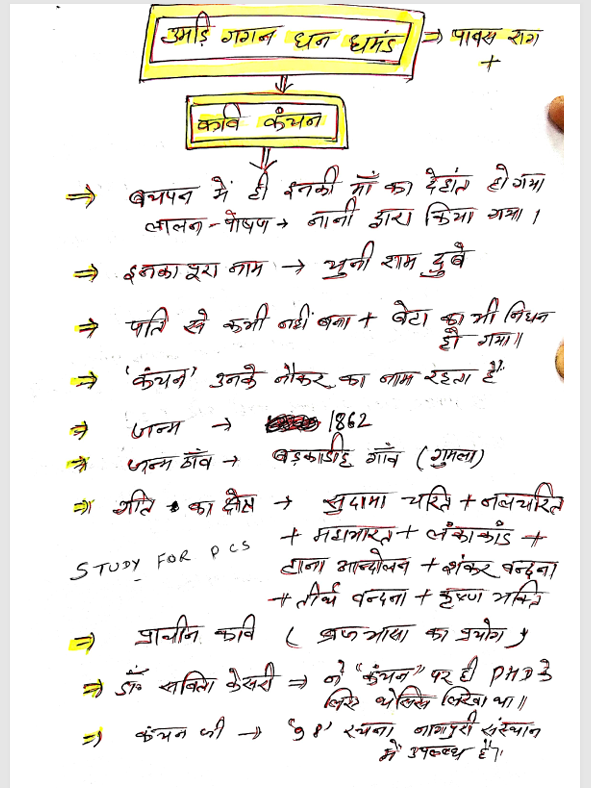 उमड़ि गगन घन घमंड ⇒ पावस राग
+
कवि कंचन
⇒ बचपन में ही इनकी माँ का देहांत हो गया
लालन-पोषण → नानी द्वारा किया गया।
⇒ इनका पूरा नाम → मुनी राम दुबे
⇒ पति से कभी नहीं बना + बेटा का भी निधन
हो गया॥
⇒ 'कंचन' उनके नौकर का नाम रहता है"
⇒ जन्म → 1862
⇒ जन्म गाँव → बड़काडीह गाँव (गुमला)
⇒ गीत का क्षेत्र → सुदामा चरित + नलचरित
+ महाभारत + लंकाकांड +
STUDY FOR PCS
टाना आन्दोलन + शंकर वन्दना
+ तीर्थ वन्दना + कृष्ण भक्ति
⇒ प्राचीन कवि (ब्रज भासा का प्रयोग)
⇒ डॉ॰ सविता केसरी ⇒ ने "कंचन" पर ही PHD के
लिए थेसिस लिखा था॥
⇒ कंचन की → '98' रचना नागपुरी संस्थान
में उपलब्ध है।